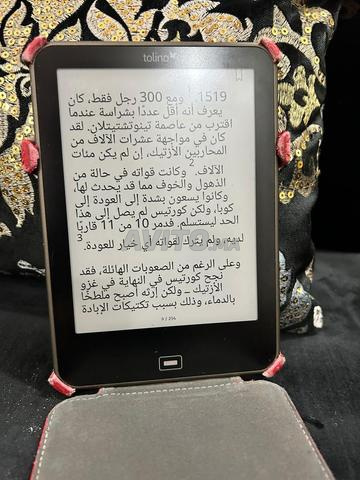 tolino
1519. ومع 300 رجل فقط، كان
يعرف أنه أقل عددًا بشراسة عندما
اقترب من عاصمة تينوتشتيتلان. لقد
كان في مواجهة عشرات الآلاف من
المحاربين الأزتيك، إن لم يكن مئات
الآلاف.2 وكانت قواته في حالة من
الذهول والخوف مما قد يحدث لها،
وكانوا يسعون بشدة إلى العودة إلى
كوبا، ولكن كورتيس لم يصل إلى هذا
الحد ليستسلم. فدمر 10 من 11 قاربًا
لديه، ولم يترك لقواته أي خيار للعودة.3
وعلى الرغم من الصعوبات الهائلة، فقد
نجح كورتيس في النهاية في غزو
الأزتيك – ولكن إرثه أصبح ملطخًا
بالدماء، وذلك بسبب تكتيكات الإبادة
9 / 254